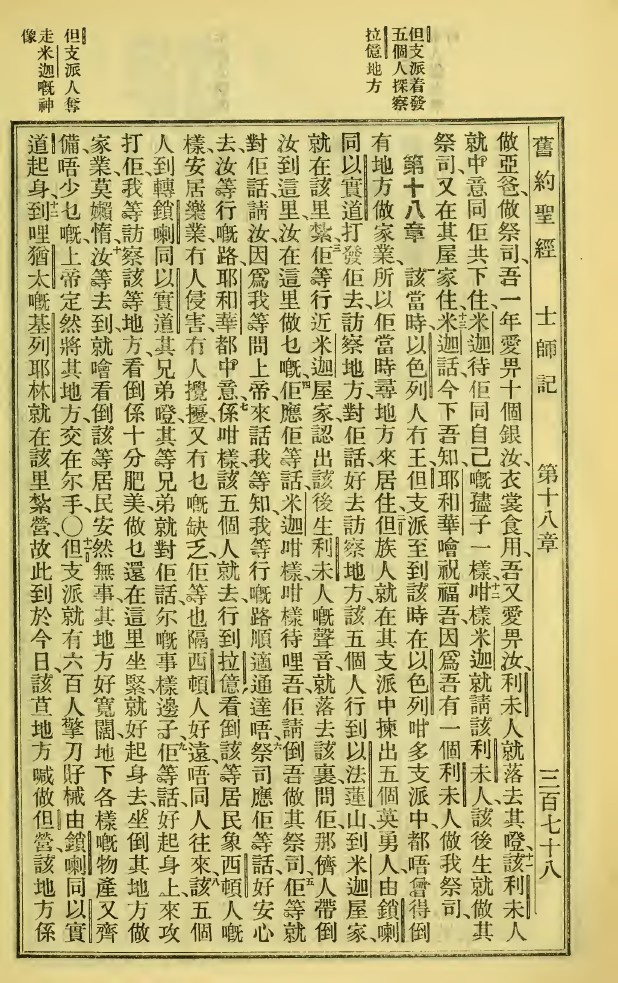 但支派着發
五個人探察
拉億地方
但支派人奪
走米迦嘅神
像
舊約聖經 士師記 第十八章 三百七十八
做亞爸、做祭司、吾一年愛畀十個銀、汝衣裳食用、吾又愛畀汝、利未人就落去其嶝、十一該利未人
就中意同佢共下住、米迦待佢同自己嘅孻子一樣、十二咁樣米迦就請該利未人、該後生就做其
祭司、又在其屋家住、十三米迦話今下吾知耶和華噲祝福吾、因爲吾有一個利未人做我祭司、
第十八章 一該當時以色列人冇王、但支派至到該時在以色列咁多支派中、都唔曾得倒
有地方做家業、所以佢當時尋地方來居住、二但族人就在其支派中揀出五個英勇人、由鎖喇
同以實道打發佢去訪察地方、對佢話、好去訪察地方、該五個人行到以法蓮山、到米迦屋家、
就在該里紮、三佢等行近米迦屋家、認出該後生利未人嘅聲音、就落去該裏問佢、那儕人帶倒
汝到這里、汝在這里做乜嘅、四佢應佢等話、米迦咁樣咁樣待哩吾、佢請倒吾做其祭司、五佢等就
對佢話、請汝因爲我等問上帝、來話我等知、我等行嘅路順適通達唔、六祭司應佢等話、好安心
去、汝等行嘅路、耶和華都中意、七係咁樣該五個人就去、行到拉億、看倒該等居民、象西頓人嘅
樣、安居樂業、冇人侵害、冇人攪擾、又冇乜嘅缺乏、佢等也隔西頓人好遠、唔同人往來、八該五個
人到轉鎖喇同以實道其兄弟嶝、其等兄弟就對佢話、尔嘅事樣邊子、九佢等話、好起身上來攻
打佢、我等訪察該等地方、看倒係十分肥美、做乜還在這里坐緊、就好起身去、坐倒其地方做
家業、莫嬾惰、十汝等去到就噲看倒該等居民安然無事、其地方好寬闊、地下各樣嘅物產、又齊
備唔少乜嘅、上帝定然將其地方交在尔手、〇十一但支派就有六百人、擎刀好械、由鎖喇同以實
道起身、十二到哩猶太嘅基列耶林、就在該里紮營、故此到於今日、該𫰛地方喊做但營、該地方係